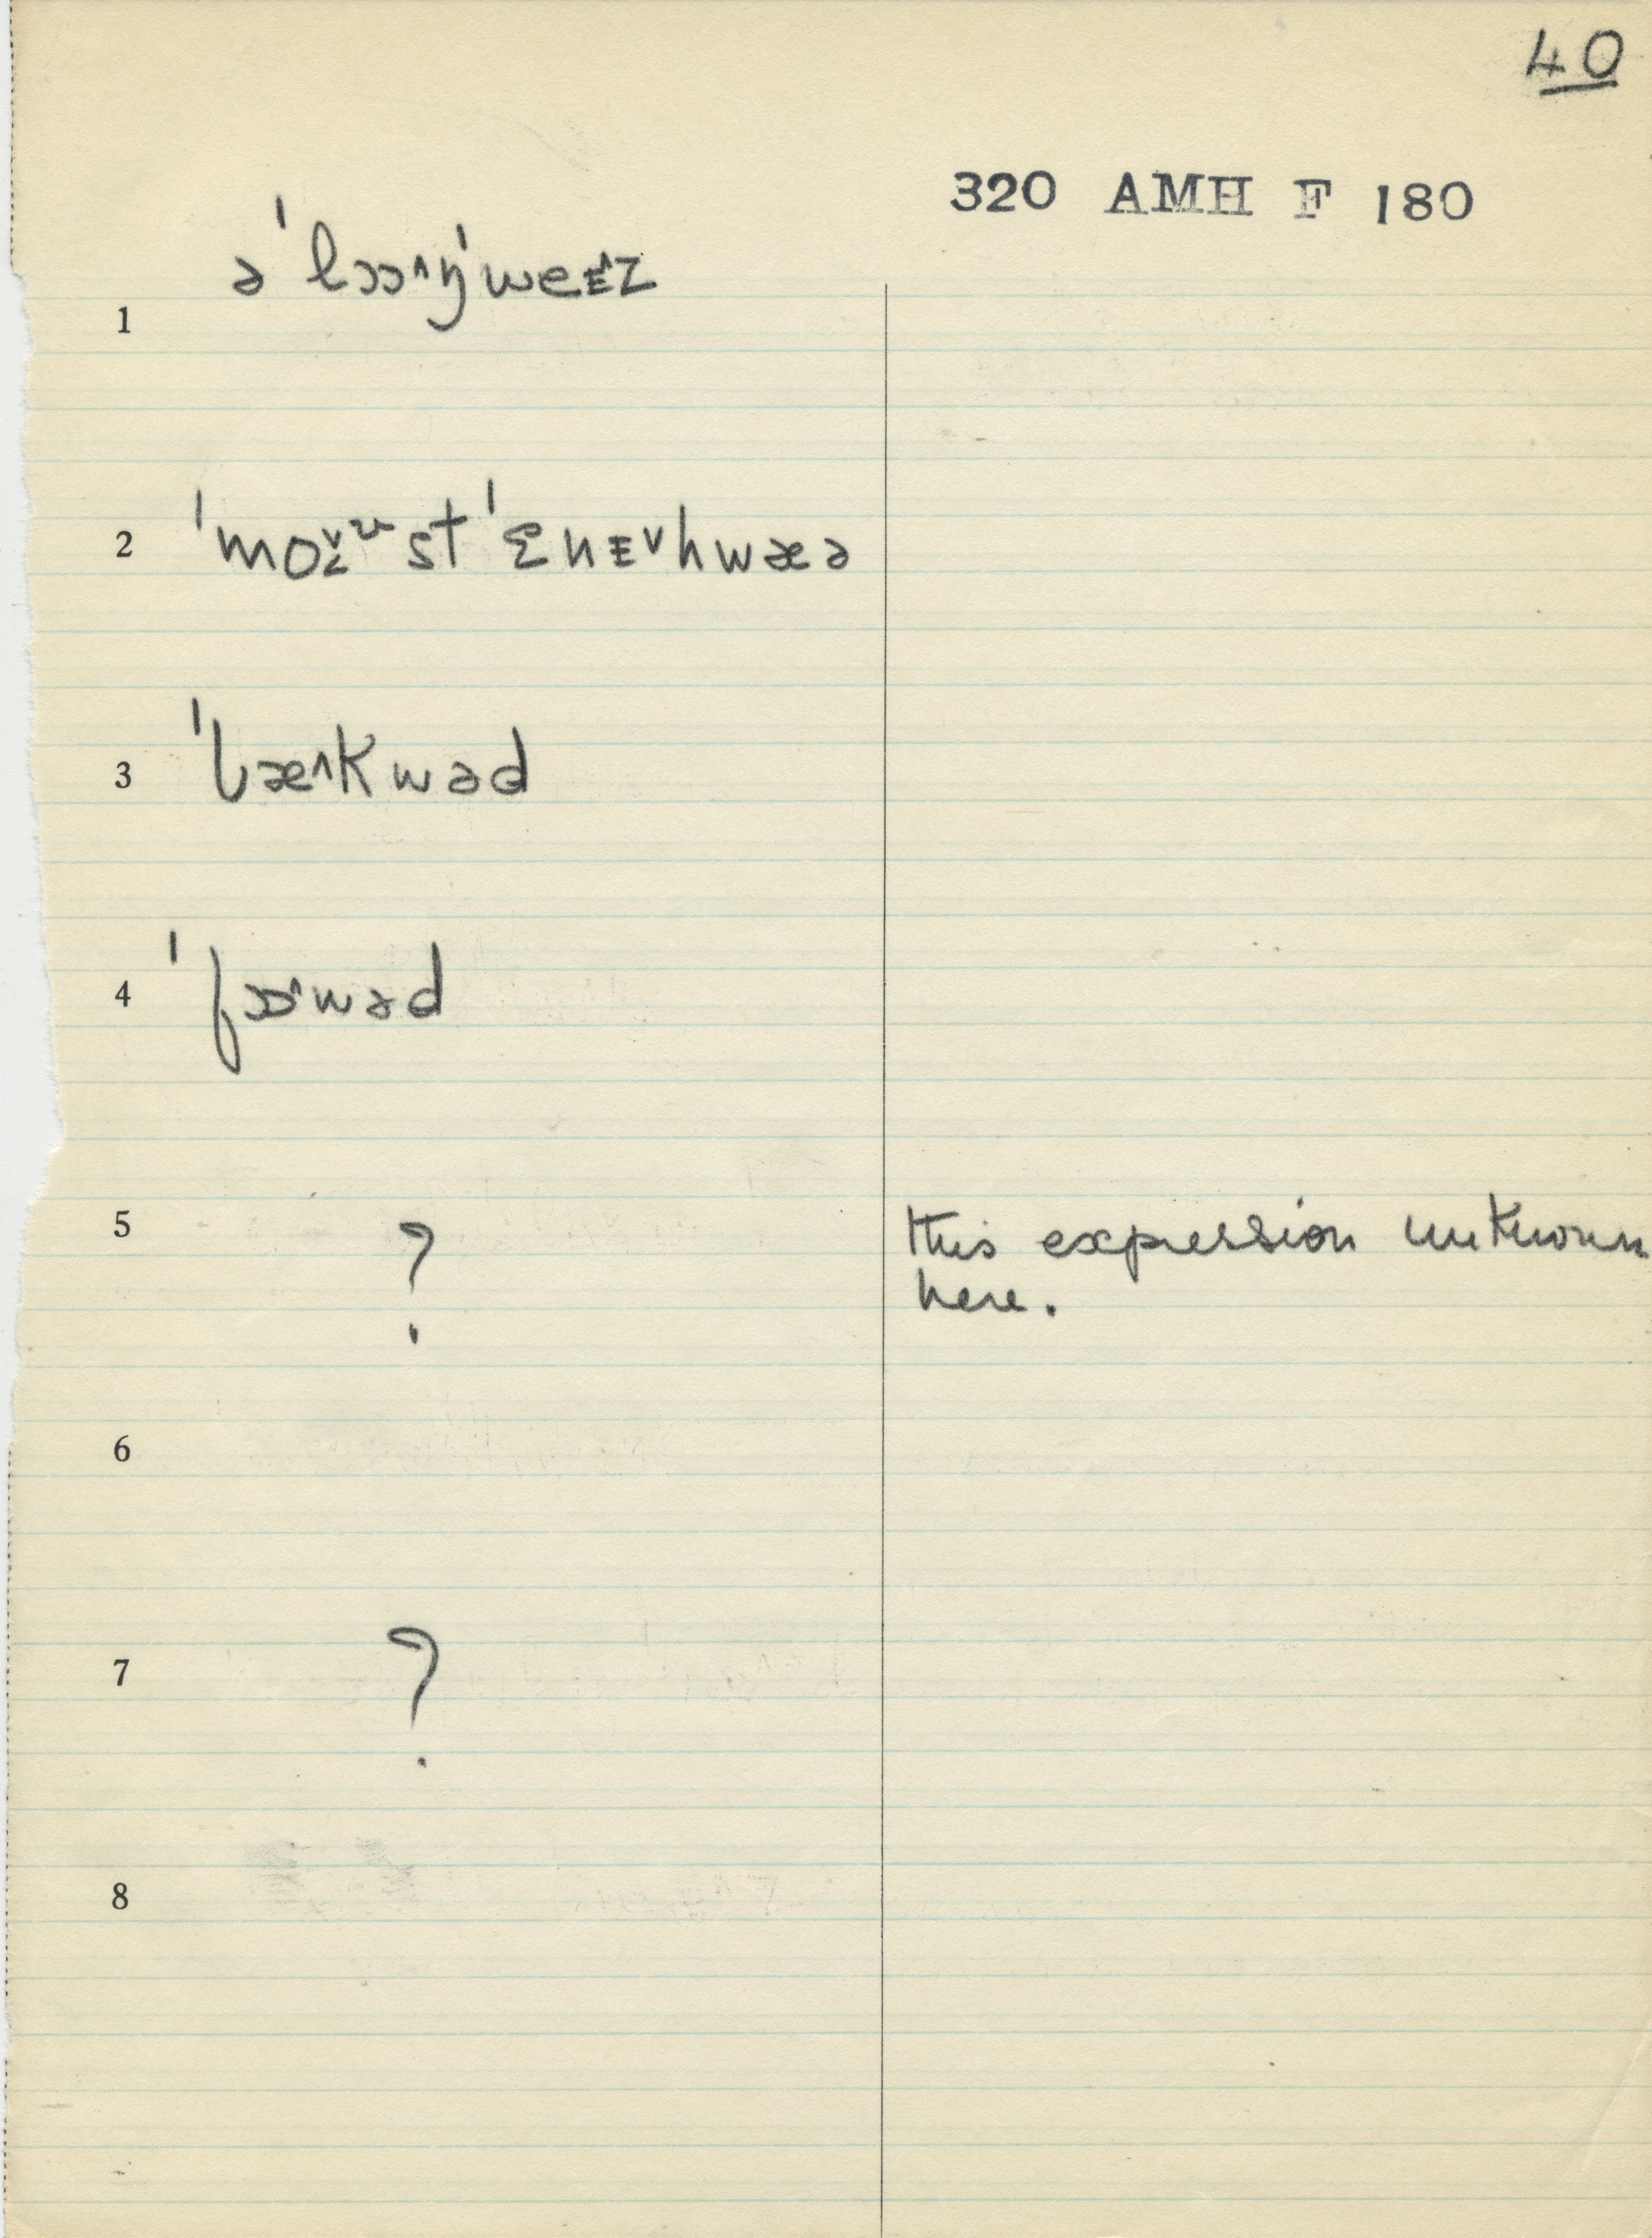 40
320 AMH F 180
1 ə'lɔɔ^ŋ'weᴇ^z
2 'moᵛᵘst'ɛnᴇᵛhwæə
3 'bæ^kwəd
4 'fɔɒ^wəd
5 ? this expression unknown
here.
6
7 ?
8